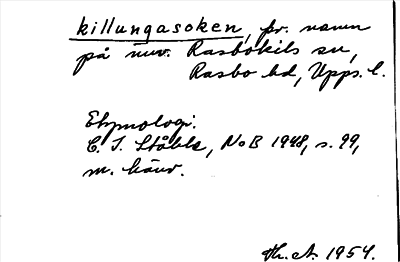 killungasoken, fr. namn
på nuv. Rasbokils sn,
Rasbo hd, Upps. l.
Etymologi:
C. I. Ståhle, NoB 1948, s. 99,
m. hänv.
Th. A. 1954.